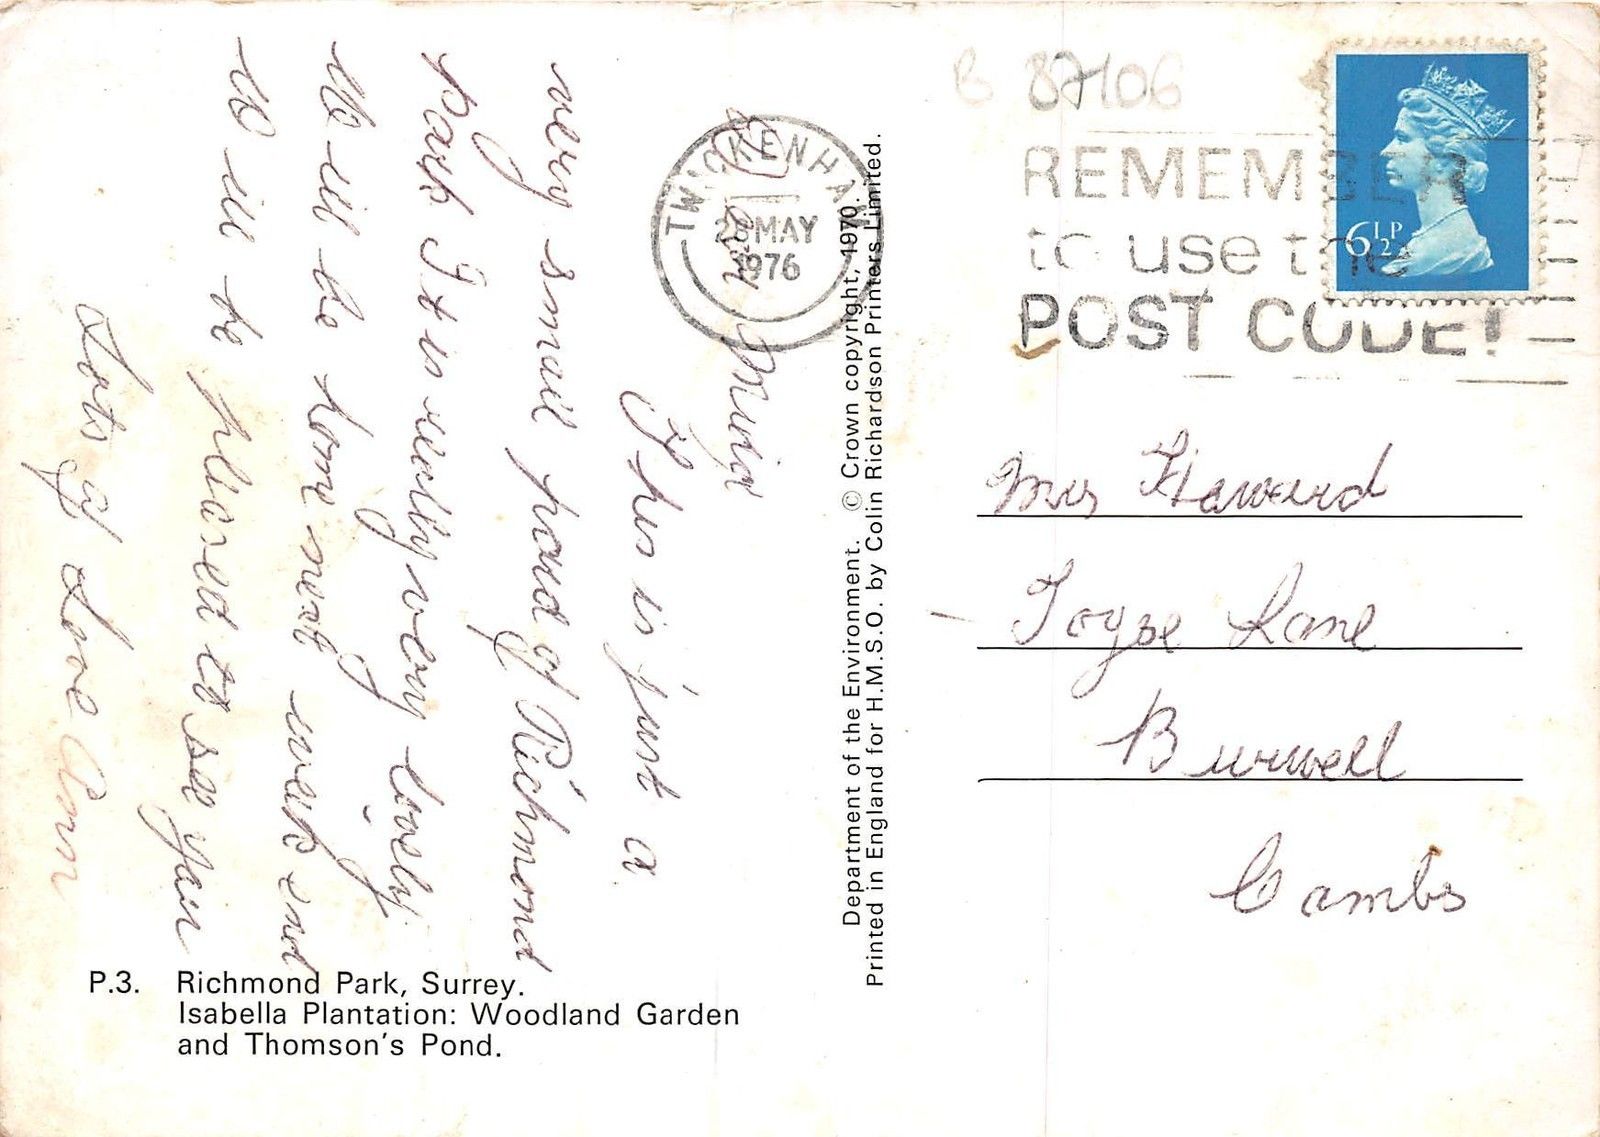 Dear Midge
This is just a
very small part of Richmond
Park It is really very lovely.
We will be home next week end
We will be pleased to see you
Lots of Love Ann
P.3. Richmond Park, Surrey.
Isabella Plantation: Woodland Garden
and Thomson's Pond.
Department of the Environment. © Crown copyright, 1970.
Printed in England for H.M.S.O. by Colin Richardson Printers Limited.
TWICKENHAM
MAY
1976
B 87106
REMEMBER
to use the
POST CODE!
6½P
Mrs Haward
Toyse Lane
Burwell
Cambs